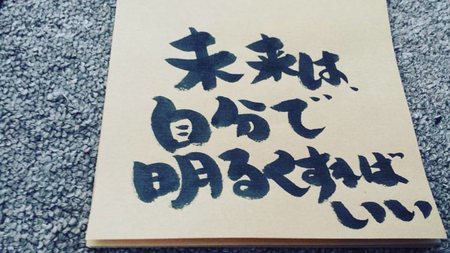 未来は、
自分で
明るくすれば
いい